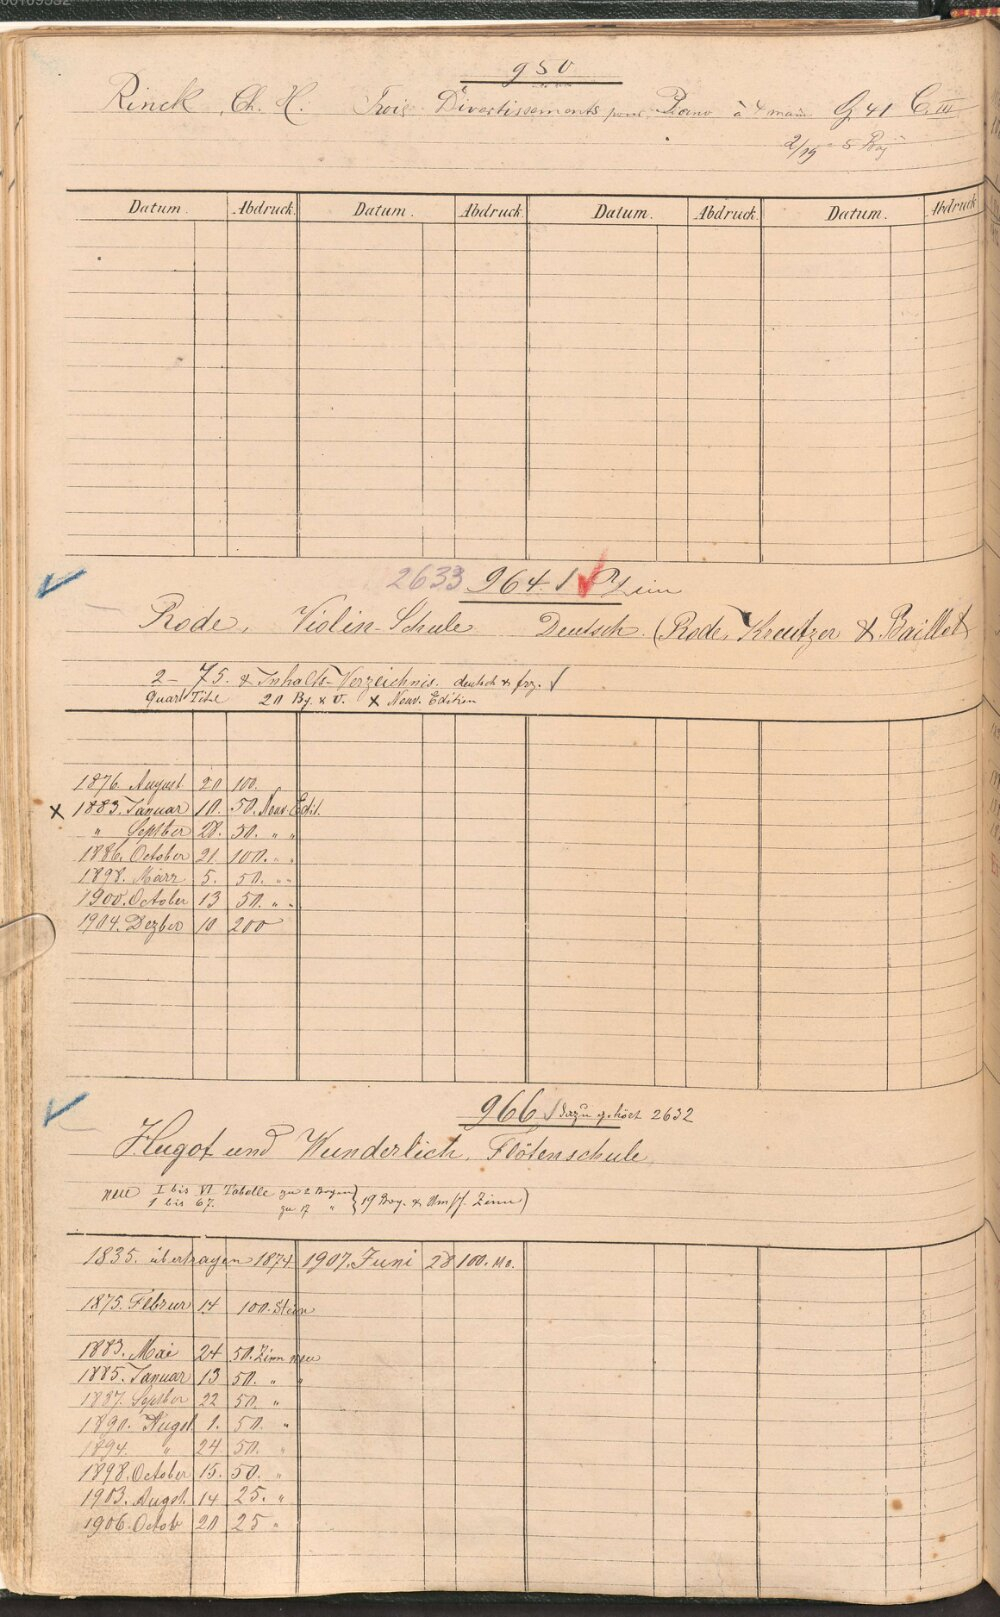 950
Rinck, Ch. H. Trois Divertissements pour Piano à 4 main. 41 C. III
2/19 = 5 Bog
Datum. Abdruck. Datum. Abdruck. Datum. Abdruck. Datum. Abdruck
2633 964. Zinn
Rode, Violin-Schule Deutsch. (Rode, Kreutzer & Baillot
2 - 75. & Inhalts-Verzeichnis. deutsch & frz.
Quart Titel 20 Bg. & V. x Nouv. Edition
1876. August 20 100.
x 1883. Januar 10. 50. Nouv. Edit.
" Septber 28. 50. " "
1886. October 21 100. " "
1898. März 5. 50. " "
1900. October 13 50. " "
1904. Dezber 10 200
966 dazu gehört 2632
Hugot und Wunderlich, Flötenschule
neue I bis VI Tabelle zu 2 Bogen
1 bis 67. zu 17 " } 19 Bog. & Zinn)
1835. übertragen 1874 1907. Juni 28 100.
1875. Februr 14 100. Stein
1883. Mai 24 50. Zinn neu
1885. Januar 13 50. " "
1887. Septber 22 50. "
1890. Augst 1. 50. "
1894. " 24. 50. "
1898. October 15. 50. "
1903. Augst. 14 25. "
1906. Octob 20 25 "